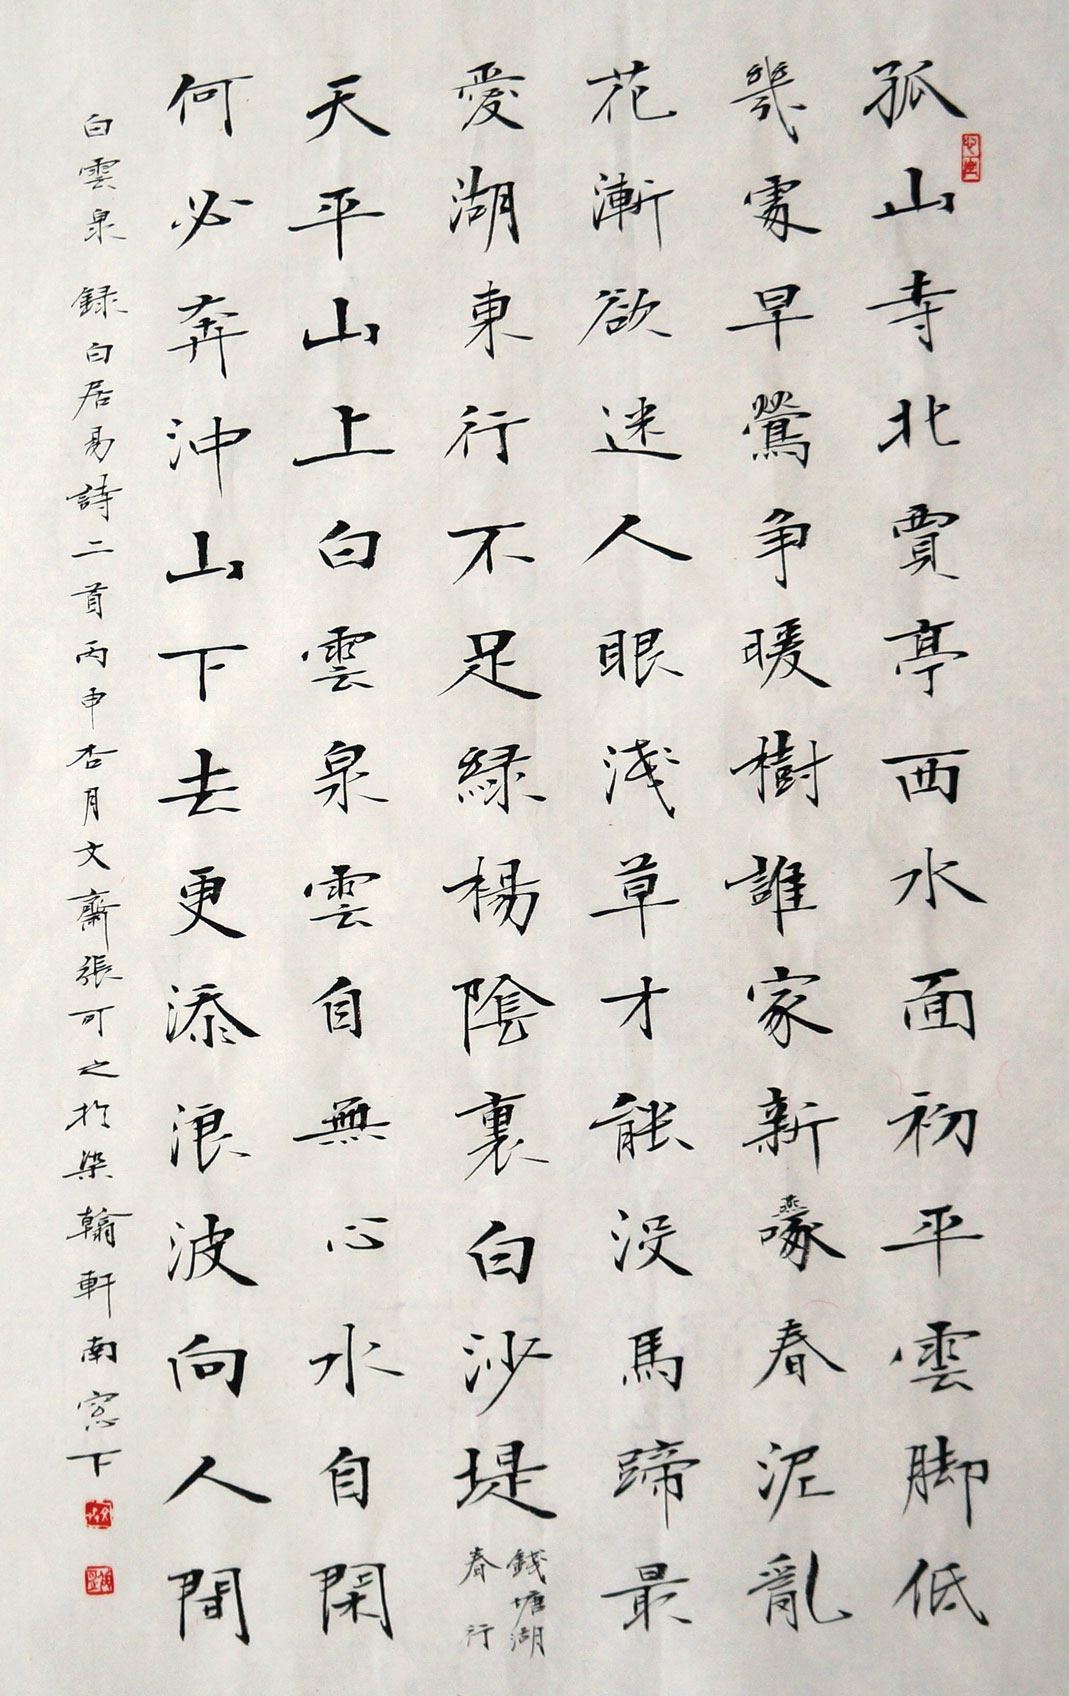 孤山寺北賈亭西水面初平雲脚低
幾處早鶯争暖樹誰家新啄春泥亂
花漸欲迷人眼淺草才能没馬蹄最
愛湖東行不足緑楊陰裏白沙堤
錢塘湖
春行
天平山上白雲泉雲自無心水自閑
何必奔沖山下去更添浪波向人間
白雲泉 録白居易詩二首丙申杏月文齋張可之於染翰軒南窓下